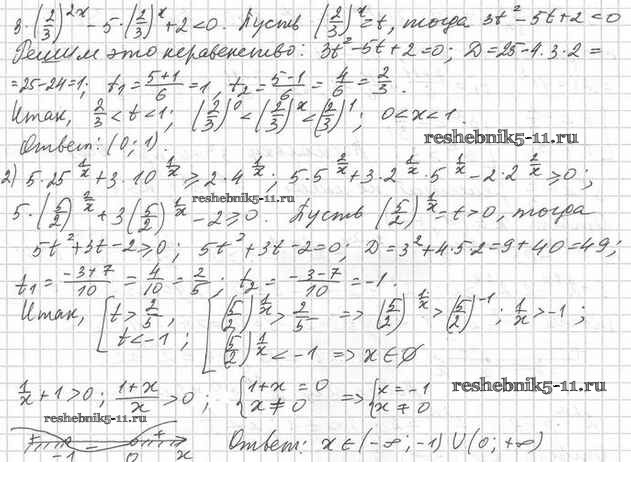 3·(2/3)^{2x} − 5·(2/3)^x + 2 < 0. Пусть (2/3)^x = t, тогда 3t² − 5t + 2 < 0
Решим это неравенство: 3t² − 5t + 2 = 0; D = 25 − 4·3·2 =
= 25 − 24 = 1; t₁ = (5+1)/6 = 1, t₂ = (5−1)/6 = 4/6 = 2/3.
Итак, 2/3 < t < 1; (2/3)^0 < (2/3)^x < (2/3)^1; 0 < x < 1.
Ответ: (0; 1).
reshebnik5-11.ru
2) 5·25^{1/x} + 3·10^{1/x} ⩾ 2·4^{1/x}; 5·5^{2/x} + 3·2^{1/x}·5^{1/x} − 2·2^{2/x} ⩾ 0;
reshebnik5-11.ru
5·(5/2)^{2/x} + 3(5/2)^{1/x} − 2 ⩾ 0. Пусть (5/2)^{1/x} = t > 0, тогда
5t² + 3t − 2 ⩾ 0; 5t² + 3t − 2 = 0; D = 3² + 4·5·2 = 9 + 40 = 49;
t₁ = (−3+7)/10 = 4/10 = 2/5; t₂ = (−3−7)/10 = −1.
Итак, [t > 2/5, t < −1; [(5/2)^{1/x} > 2/5 => (5/2)^{1/x} > (5/2)^{−1}; 1/x > −1;
(5/2)^{1/x} < −1 => x ∈ ∅
1/x + 1 > 0; (1+x)/x > 0; {1+x = 0, x ≠ 0 => {x = −1, x ≠ 0
reshebnik5-11.ru
reshebnik5-11.ru
+ −1 − 0 + x Ответ: x ∈ (−∞; −1) ∪ (0; +∞)